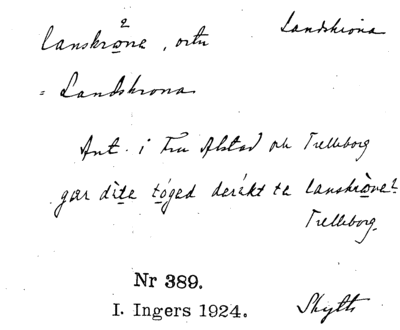 lanskròna, ortn Landskrona
= Landskrona
Ant. i Fru Alstad och Trelleborg
gær díte tóged derékt te lanskròna?
Trelleborg.
Nr 389.
I. Ingers 1924. Skytts